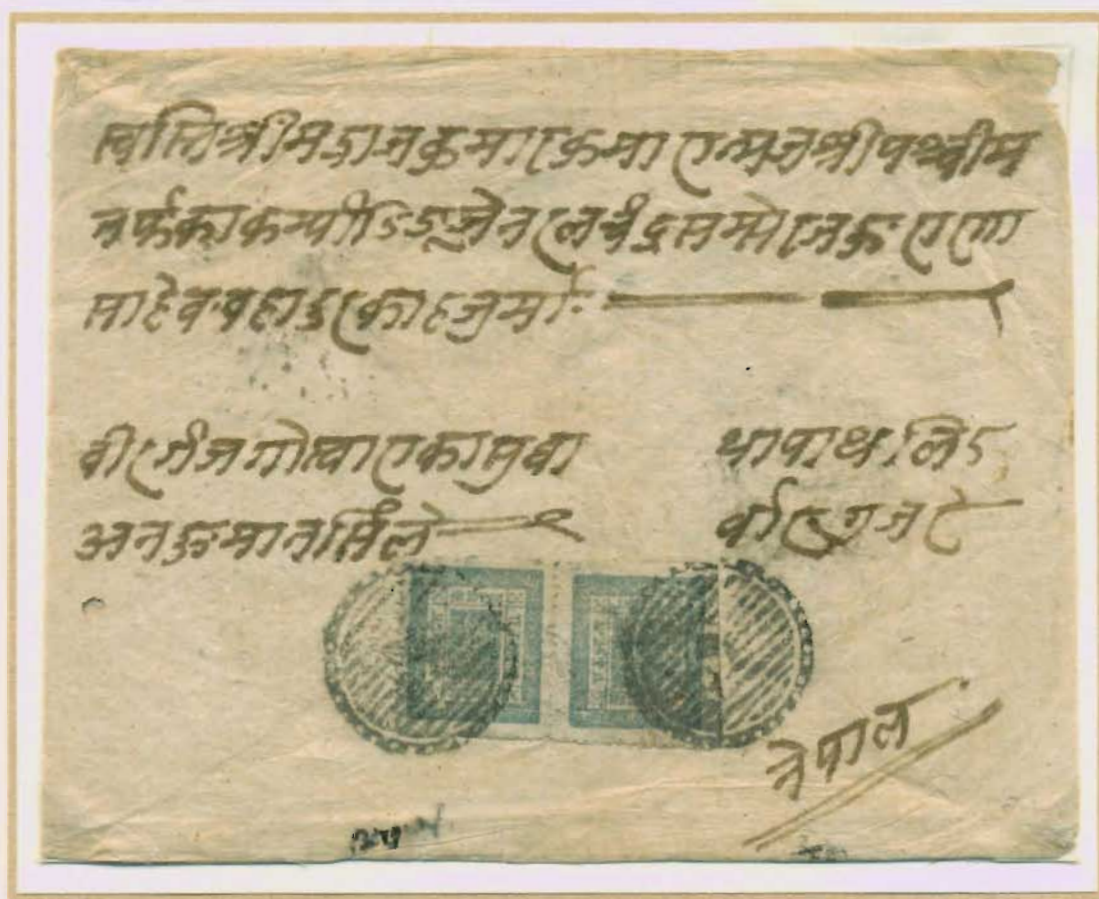 स्वस्तिश्रीमद्राजकुमारकुमारात्मजश्रीपश्चीम
तर्फका कम्यांडिङ जनरल चंद्र सम्सेर जङ्ग राणा
साहेव वहादुरका हजुरमा
वीरगंज गोस्वाराका सुवा थापाथलि
अनङ्गमानसिंले वीरगंज
नेपाल